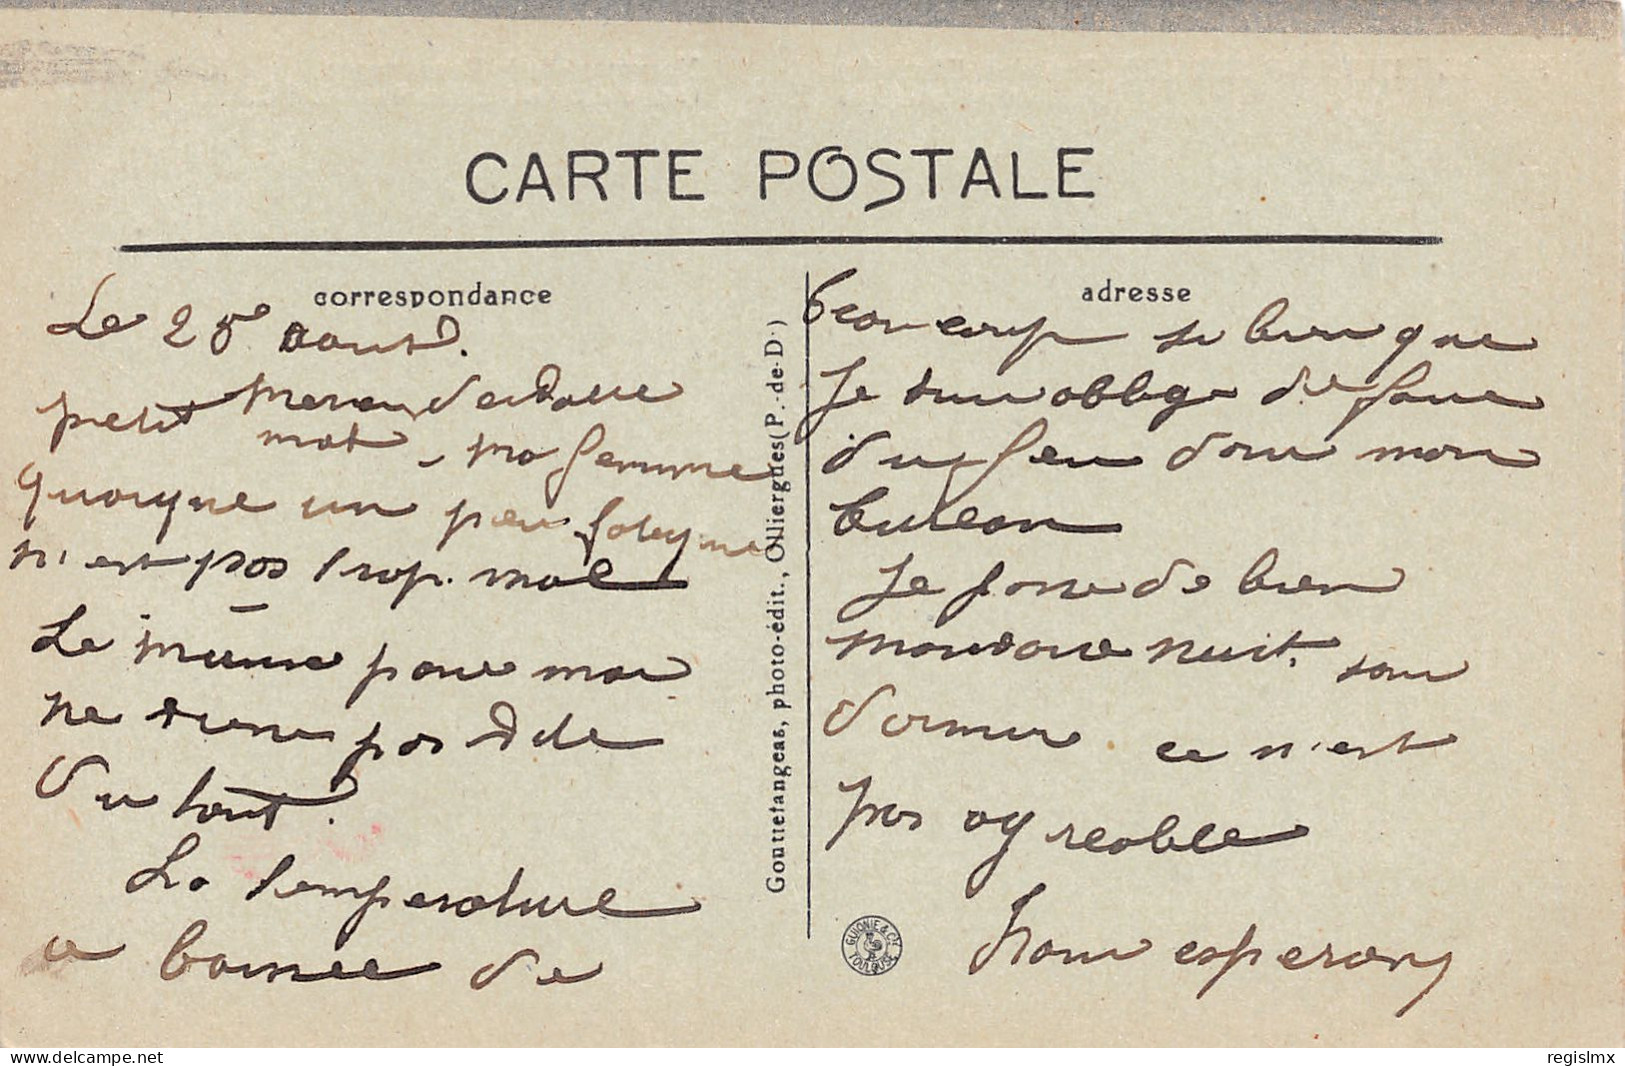 CARTE POSTALE
correspondance
Le 25 aout.
petit mot, ma femme
quoique un peu
n'est pas trop mal
Le même pour moi
ne
du tout.
La temperature
a baissée de
Gouttefangeas, photo-édit., Olliergues (P.-de-D.)
GUIONIE & Cie TOULOUSE
adresse
beaucoup si bien que
Je suis oblige de faire
du feu dans mon
bureau
Je passe de bien
mauvaise nuit. sans
dormir ce n'est
pas agreable
Nous esperons
delcampe.net
regislmx